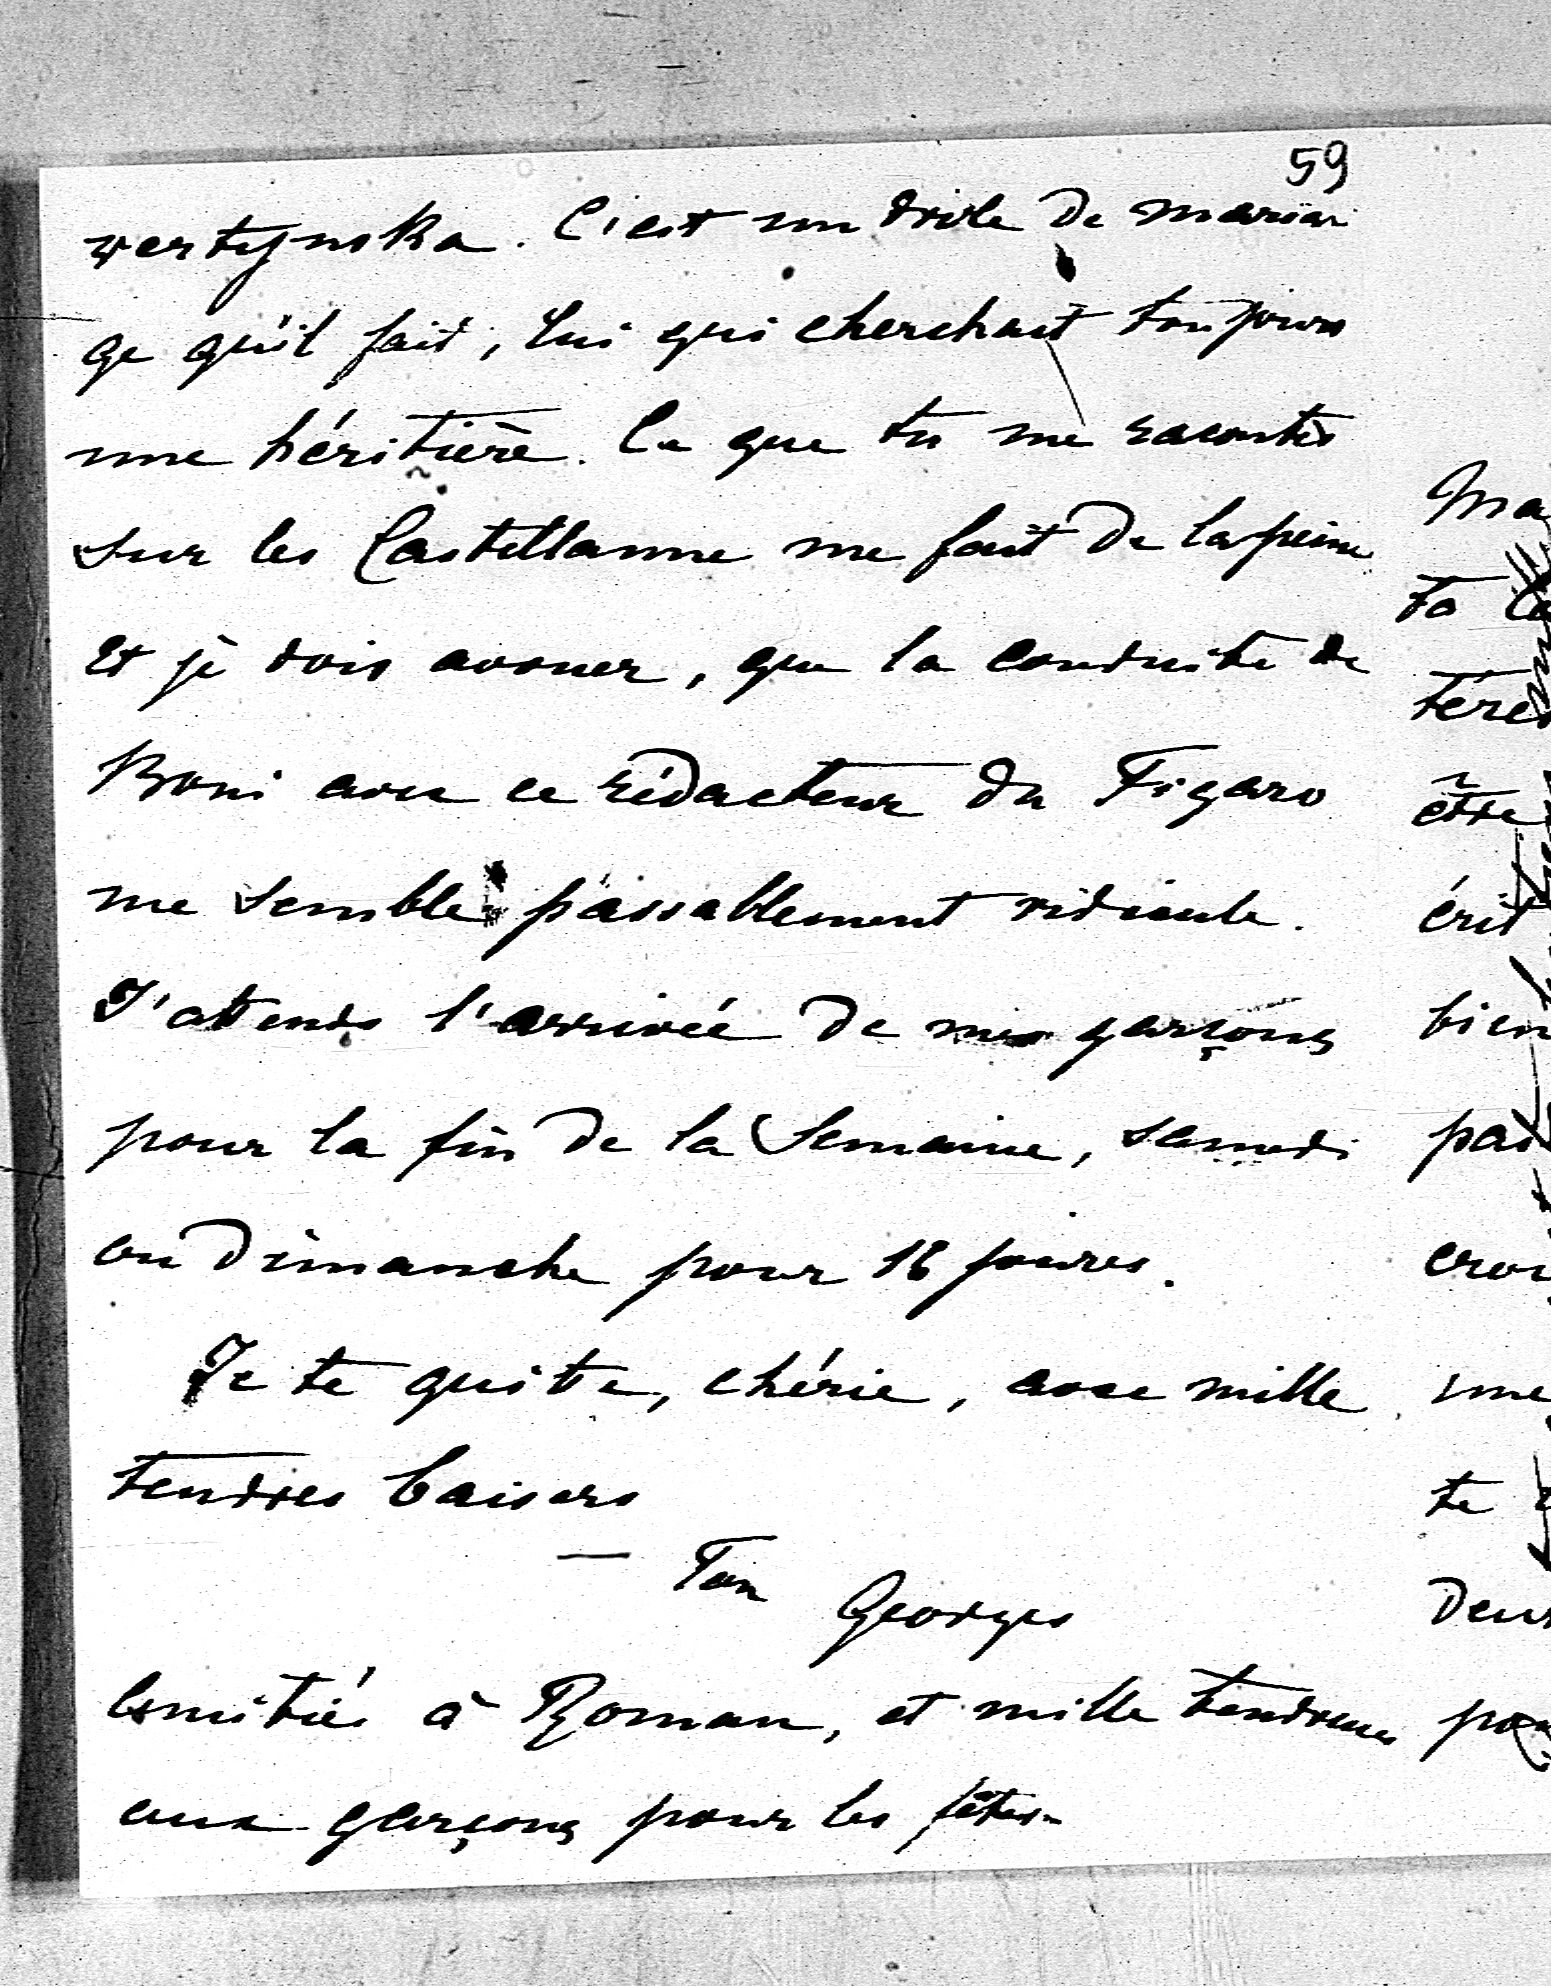 59
vertynska. C'est un drôle de maria
ge qu'il fait, lui qui cherchait toujours
une héritière. Ce que tu me racontes
sur les Castellanne me fait de la peine
et je dois avouer, que la conduite de
Boni avec ce rédacteur du Figaro
me semble passablement ridicule.
J'attends l'arrivée de mes garçons
pour la fin de la semaine, samedi
ou dimanche pour 16 jours.
Je te quitte, chérie, avec mille
tendres baisers
— Ton
Georges
Amitiés à Roman, et mille tendresses
aux garçons pour les fêtes.
Ma
ta
téres
être
érit
bien
pas
croi
une
te
deux